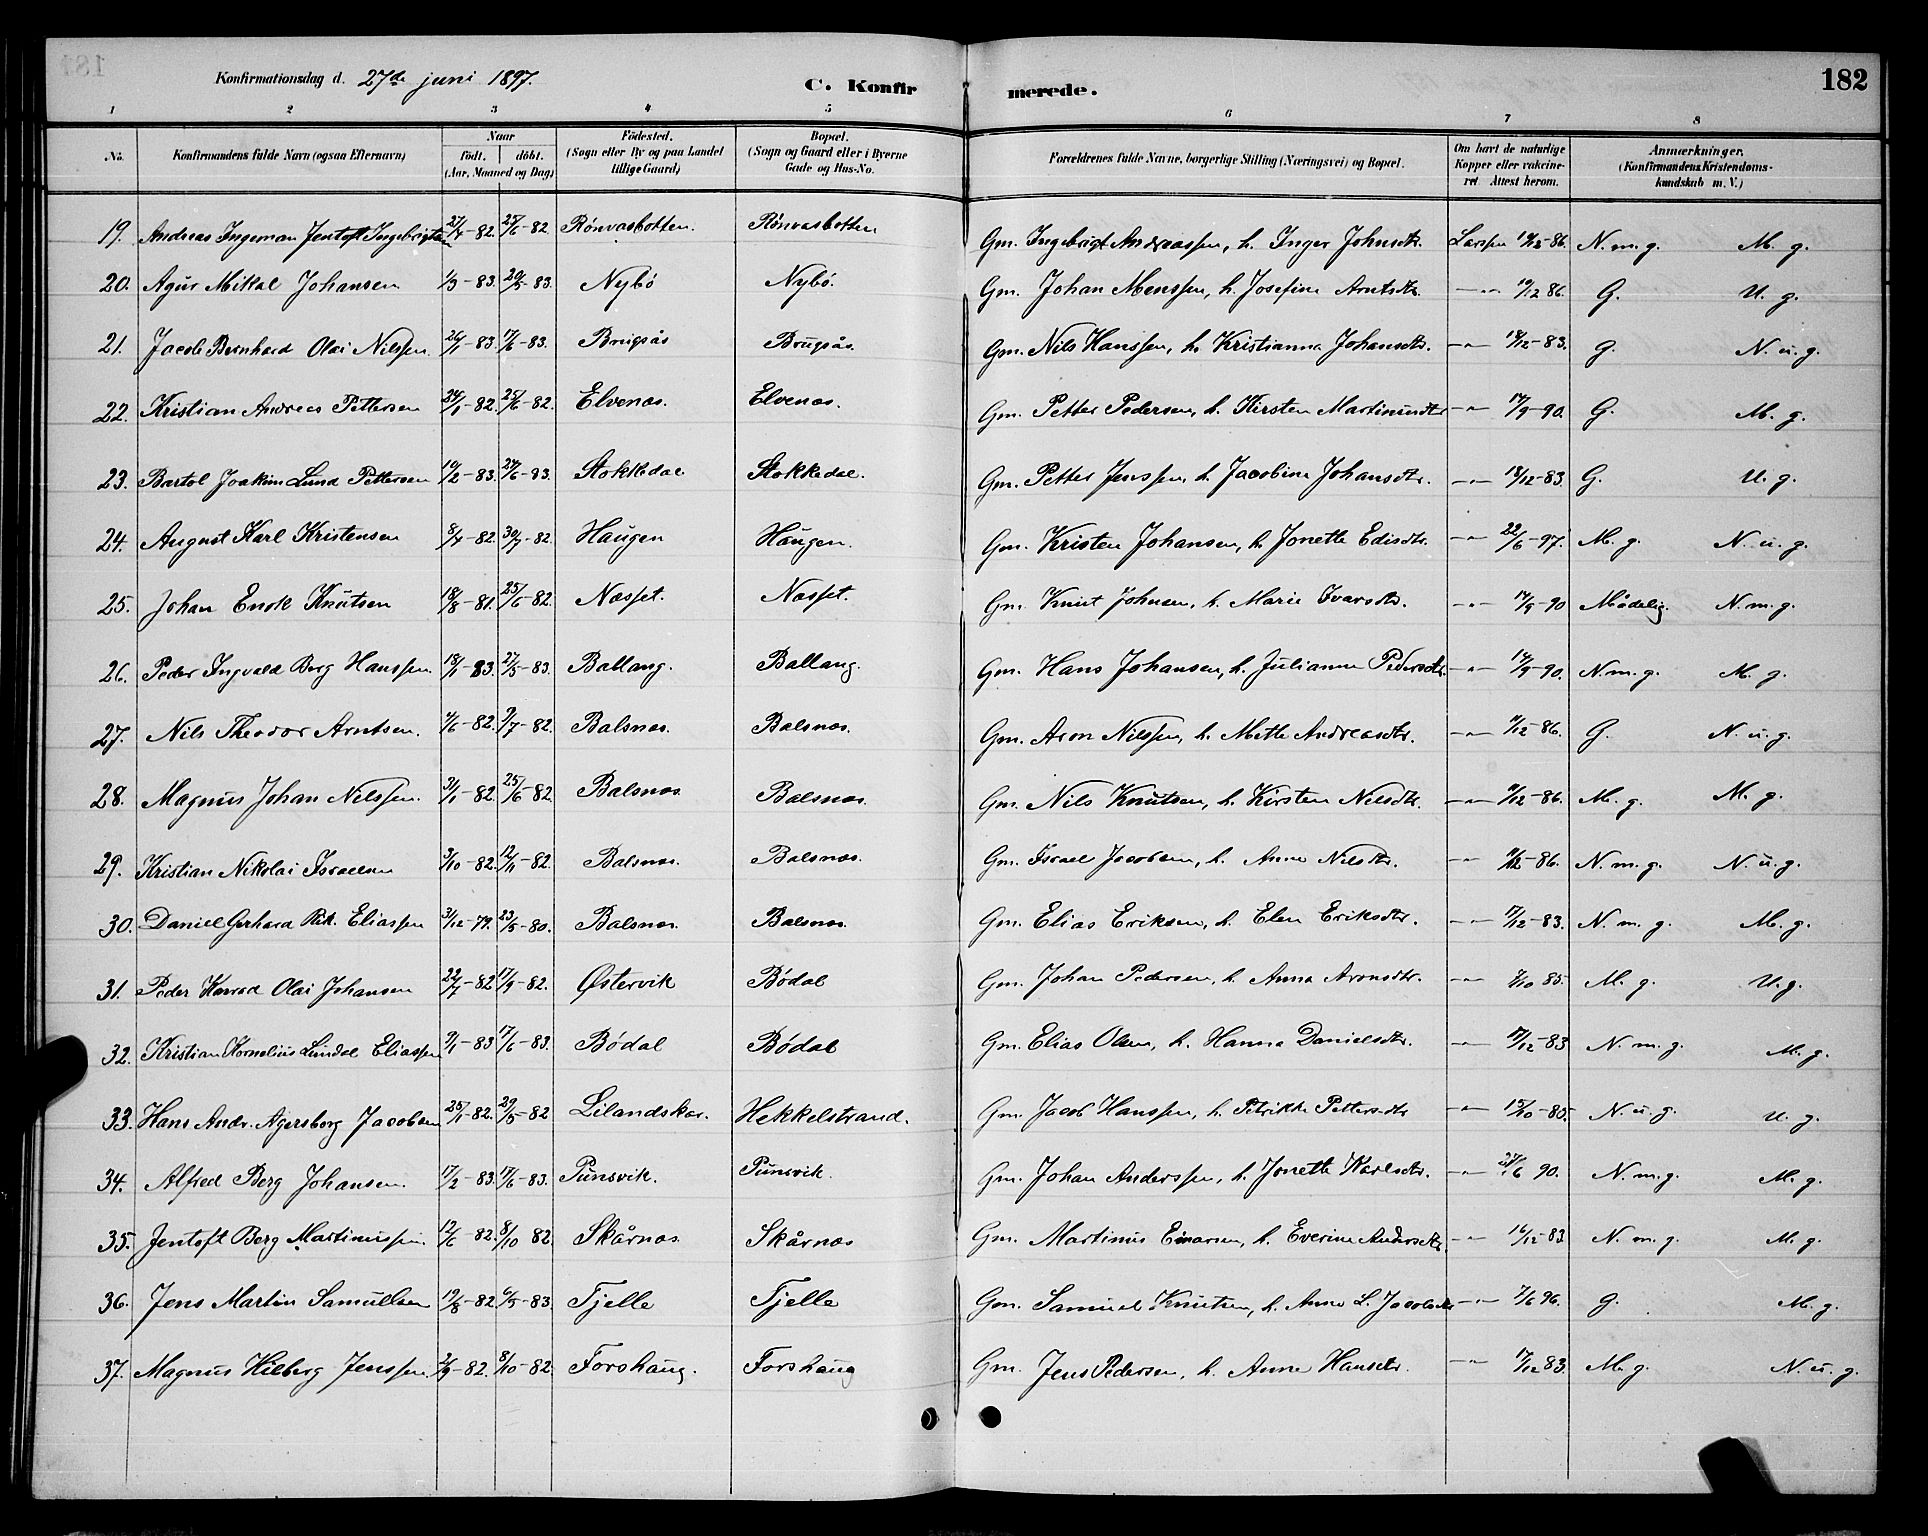 Konfirmationsdag d. 27de juni 1897. C. Konfir merede. 182
1 2 3 4 5 6 7 8
No. Konfirmandens fulde Navn (ogsaa Efternavn) Naar født. døbt. (Aar, Maaned og Dag) Födested. (Sogn eller By og paa Landet tillige Gaard) Bopæl. (Sogn og Gaard eller i Byerne Gade og Hus-No. Forældrenes fulde Navne, borgerlige Stilling (Næringsvei) og Bopæl. Om havt de naturlige Kopper eller vakcineret Attest herom. Anmærkninger, (Konfirmandens Kristendomskundskab m. V.)
19. Andreas Ingeman Jentoft Ingebrigtsen 27/4-82. 25/6-82. Rönvasbotten. Rönvasbotten Gm. Ingebrigt Andreassen, h. Inger Johnsdtr. Larsen -86. N. m. g. M. g.
20. Agur Mikal Johansen 1/3-83. 20/5-83. Nybö Nybö. Gm. Johan Menssen, h. Josefine Arntsdtr. -"- 10/12 86. G. U. g.
21. Jacob Bernhard Olai Nilssen. 26/1-83. 17/6-83. Brugsås Brugsås. Gm. Nils Hanssen, h. Kristianna Johansdtr. -"- 18/12-83. G. N. u. g.
22. Kristian Andreas Pettersen 24/1-82. 25/6-82. Elvenæs. Elvenæs. Gm. Petter Pedersen, h. Kirsten Martinusdtr -"- 17/9-90. G. M. g.
23. Bartol Joakim Lund Pettersen 10/2-83. 24/6-83. Stokkedal Stokkedal. Gm. Petter Jenssen, h. Jacobine Johansdtr. -"- 18/12-83. G. U. g.
24. August Karl Kristensen 8/4-82. 30/7-82. Haugen Haugen. Gm. Kristen Johansen, h. Jonette Edisdtr. -"- 22/6-97. M. g. N. u. g.
25. Johan Enok Knutsen 18/8-81. 25/6-82. Næsset. Næsset. Gm. Knut Johnsen, h. Marie Ivarsdtr. -"- 17/9-90 Mådelig. N. m. g.
26. Peder Ingvald Berg Hanssen. 18/1-83. 27/5-83. Ballang. Ballang. Gm. Hans Johansen, h. Julianne Pedersdtr. -"- 17/9-90. N. m. g. M. g.
27. Nils Theodor Arntsen. 4/6-82. 9/7-82. Balsnæs. Balsnæs. Gm. Aron Nilssen, h. Mette Andreasdtr. -"- 9/12-86. G. N. u. g.
28. Magnus Johan Nilssen. 31/1-82. 25/6-82. Balsnæs. Balsnæs. Gm. Nils Knutsen, h. Kirsten Nilsdtr. -"- 9/12-86. M. g. M. g.
29. Kristian Nikolai Israelsen 3/10-82. 12/11-82. Balsnæs. Balsnæs. Gm. Israel Jacobsen, h. Anne Nilsdtr. -"- -86. N. m. g. N. u. g.
30. Daniel Gerhard Rik. Eliassen 31/12-79. 23/5-80. Balsnæs. Balsnæs. Gm. Elias Eriksen, h. Elen Eriksdtr. -"- 17/12-83. N. m. g. M. g.
31. Peder Konrad Olai Johansen 22/7-82 17/9-82. Østervik Bödal Gm. Johan Pedersen, h. Anna Aronsdtr. -"- 7/10 85. M. g. U. g.
32. Kristian Kornelius Lundal Eliassen 9/1-83 17/6-83. Bödal Bödal Gm. Elias Olsen, h. Hanna Danielsdtr. -"- 17/12-83 N. m. g. M. g.
33. Hans Andr. Agersborg Jacobsen 25/1-82. 29/5-82 Lilandskar. Hekkelstrand. Gm. Jacob Hanssen, h. Petrikke Pettersdtr -"- 15/10-85. N. u. g. U. g.
34. Alfred Berg Johansen. 17/2-83. 17/6-83. Punsvik. Punsvik. Gm. Johan Anderssen, h. Jonette Karlsdtr. -"- 24/6 90. N. m. g. M. g.
35. Jentoft Berg Martinussen. 12/6-82. 8/10 82. Skårnæs Skårnæs Gm. Martinus Einarsen, h. Everine Andersdtr. -"- 16/12-83. N. m. g. M. g.
36. Jens Martin Samuelsen 19/8-82. 6/5-83. Tjelle Tjelle Gm. Samuel Knutsen, h. Anne L. Jacobsdtr -"- 7/6 96. G. M. g.
37. Magnus Hilberg Jenssen. 2/9-82. 8/10-82. Forshaug. Forshaug Gm. Jens Pedersen, h. Anne Hansdtr. -"- 17/12 83. M. g. N. u. g.